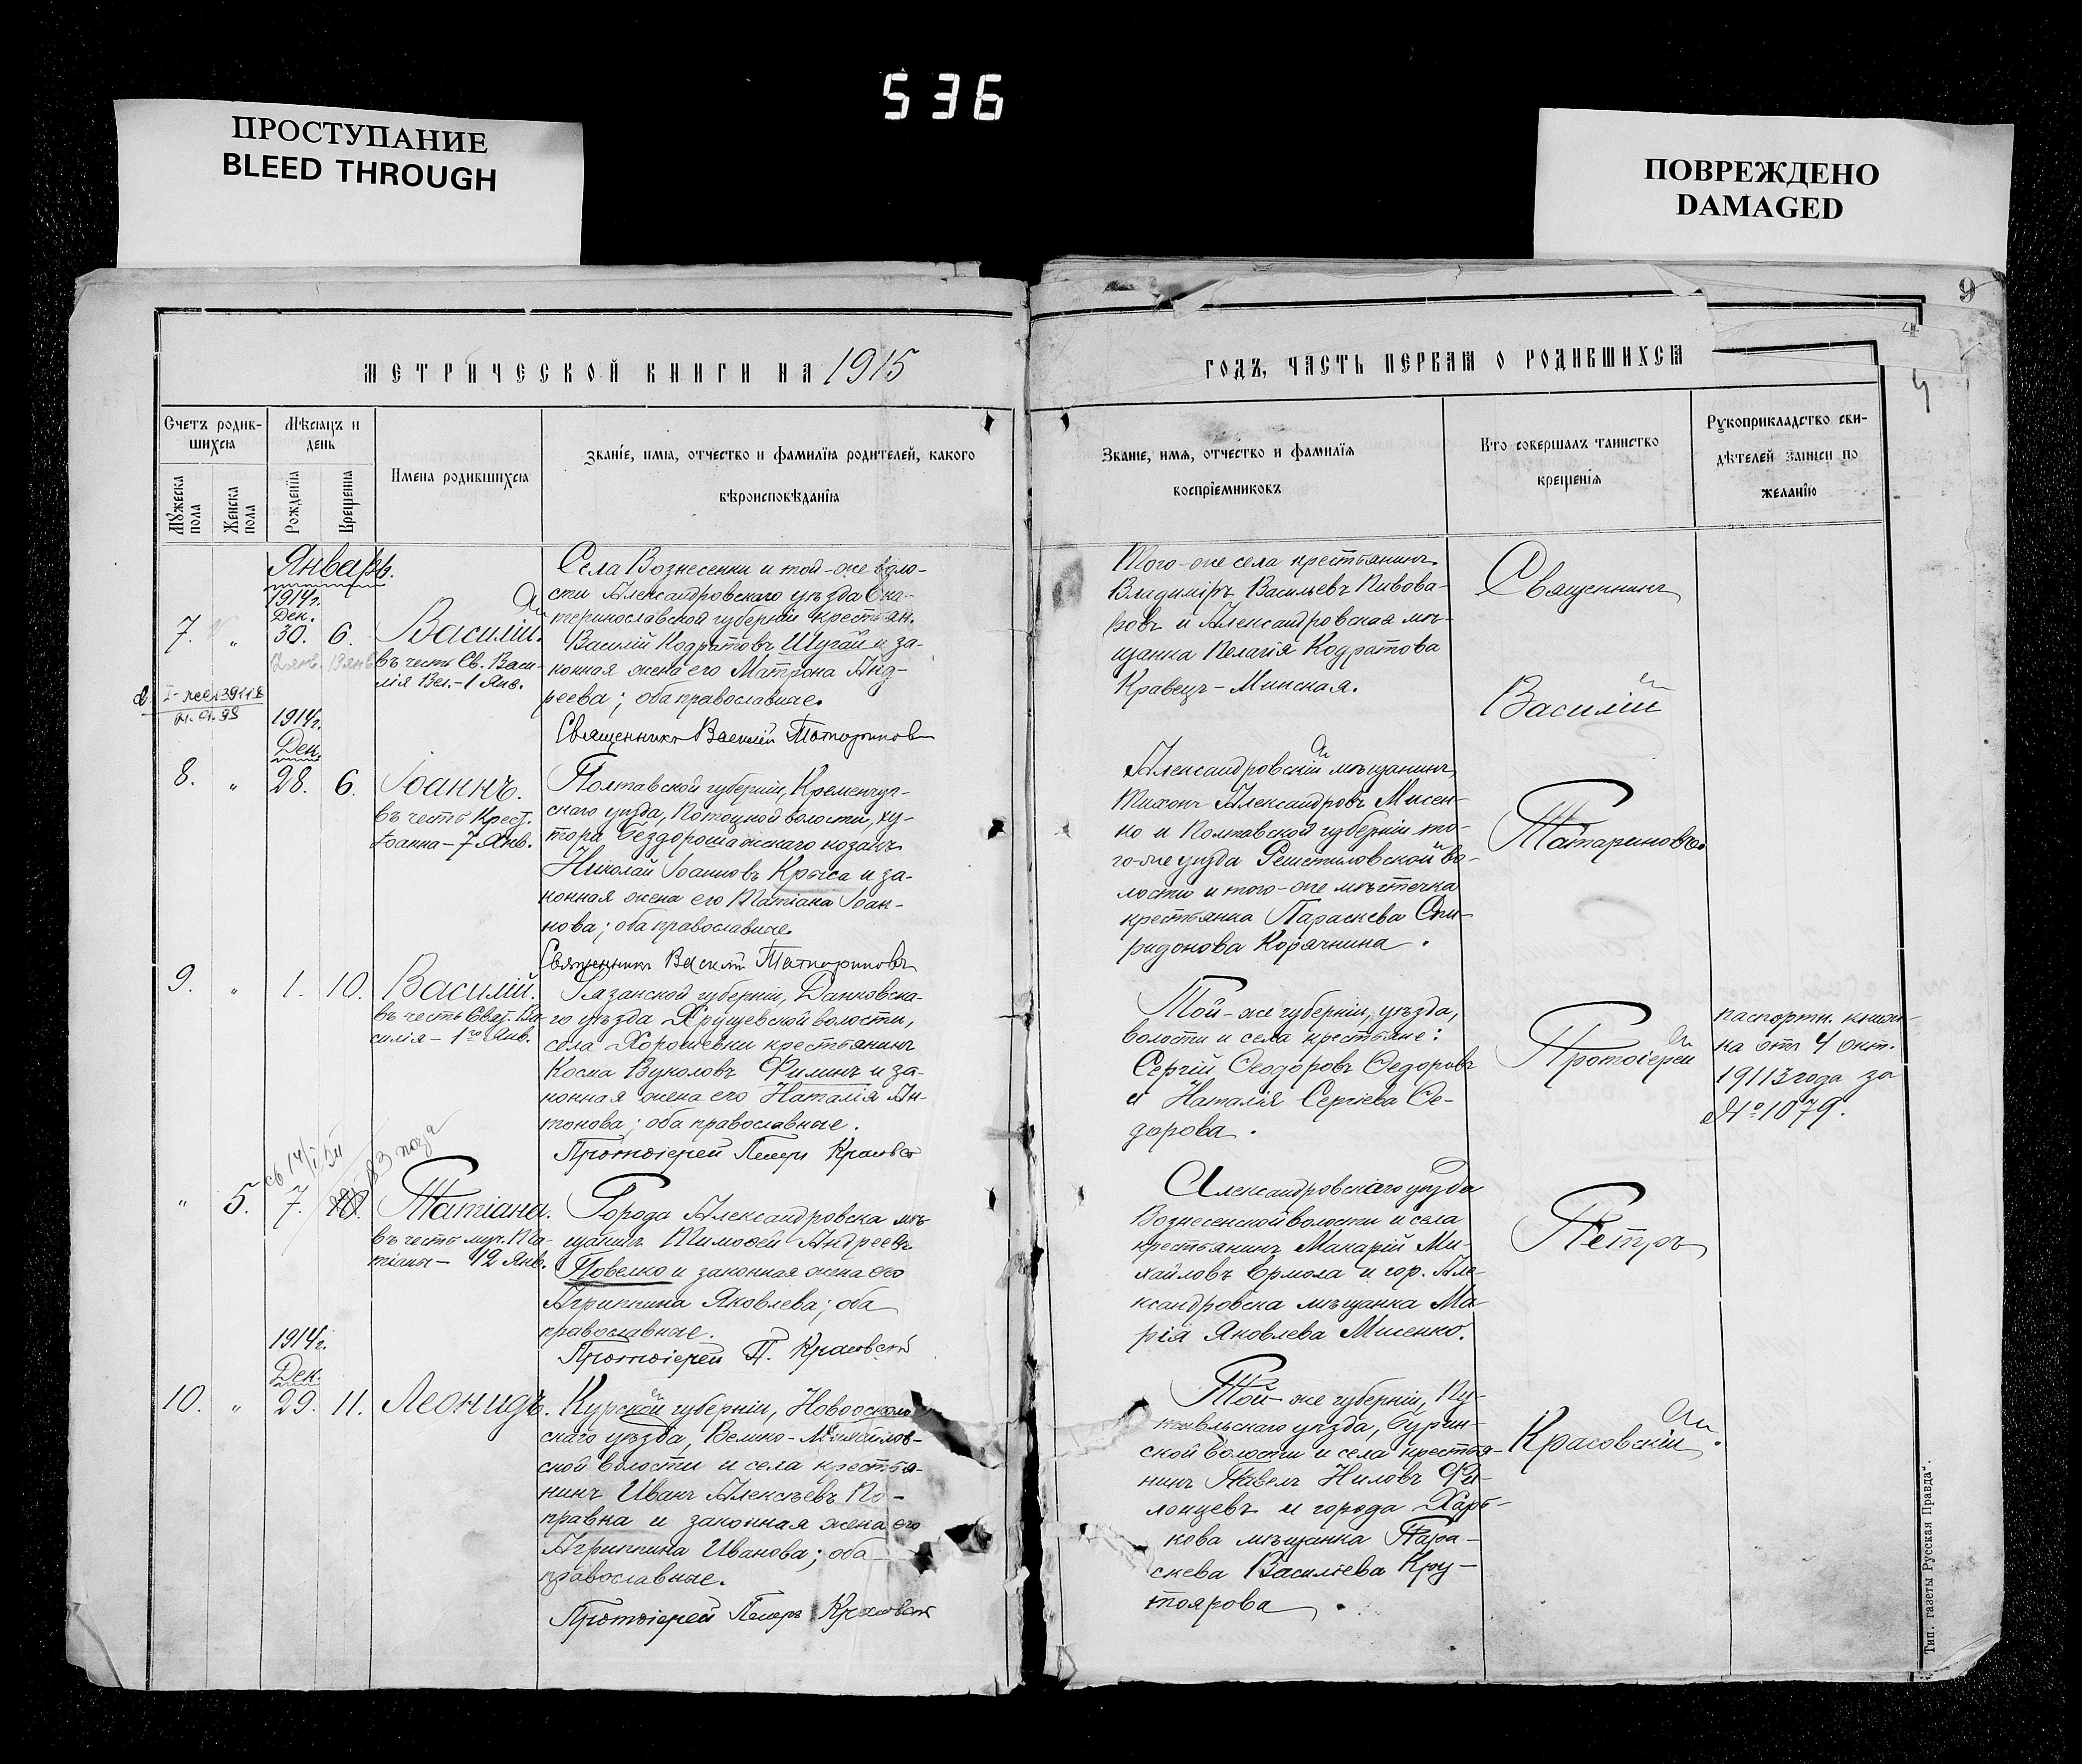 536
ПРОСТУПАНИЕ
BLEED THROUGH
ПОВРЕЖДЕНО
DAMAGED
9
4
МЕТРИЧЕСКОЙ КНИГИ НА 1915
ГОДЪ, ЧАСТЬ ПЕРВАЯ О РОДИВШИХСЯ
Счетъ родив-
шихся
Мѣсяцъ и
день
Мужеска
пола
Женска
пола
Рожденія
Крещенія
Имена родившихся
Званіе, имя, отчество и фамилія родителей, какого
вѣроисповѣданія
Званіе, имя, отчество и фамилія
воспріемниковъ
Кто совершалъ таинство
крещенія
Рукоприкладство сви-
дѣтелей записи по
желанію
Январь.
1914г.
Дек.
7. " 30. 6. Василій.
въ честь Св. Васи-
лія Вел. - 1 Янв.
Села Вознесенки и той-же воло-
сти Александровскаго уѣзда Ека-
теринославской губерніи крестьян.
Василій Кодратовъ Шугай и за-
конная жена его Матрона Анд-
реева; оба православные.
Священникъ Василій Татариновъ
Того-же села крестьянинъ
Владиміръ Васильевъ Пивова-
ровъ и Александровская мѣ-
щанка Пелагія Кодратова
Кравецъ-Минская.
Священникъ
Василій
Татариновъ.
1914г.
Дек.
8. " 28. 6. Іоаннъ.
въ честь Крест.
Іоанна - 7 Янв.
Полтавской губерніи, Кременчуг-
скаго уѣзда, Потоцкой волости, ху-
тора Бездорожанскаго козакъ
Николай Іоанновъ Крыса и за-
конная жена его Татіана Іоан-
нова; оба православные.
Священникъ Василій Татариновъ
Александровскій мѣщанинъ
Тихонъ Александровъ Мисен-
ко и Полтавской губерніи то-
го-же уѣзда Решетиловской во-
лости и того-же мѣстечка
крестьянка Параскева Спи-
ридонова Корячкина.
9. " 1. 10. Василій.
въ честь Свят. Ва-
силія - 1го Янв.
Рязанской губерніи, Данковска-
го уѣзда Хрущевской волости,
села Хорошевки крестьянинъ
Косма Вуколовъ Филинъ и за-
конная жена его Наталія Ан-
тонова; оба православные.
Протоіерей Петръ Красовскій
Той-же губерніи, уѣзда,
волости и села крестьяне:
Сергій Ѳеодоровъ Ѳедоровъ
и Наталія Сергіева Ѳе-
дорова.
Протоіерей
паспортн. книж-
ка отъ 4 окт.
1913 года за
№ 1079.
" 5. 7. 10. Татіана.
въ честь муч. Та-
тіаны - 12 Янв.
Города Александровска мѣ-
щанинъ Тимоѳей Андреевъ
Повелко и законная жена его
Агриппина Яковлева; оба
православные.
Протоіерей П. Красовскій
Александровскаго уѣзда
Вознесенской волости и села
крестьянинъ Макарій Ми-
хайловъ Ермола и гор. Але-
ксандровска мѣщанка Ма-
рія Яковлева Мисенко.
Петръ
1914г.
Дек.
10. " 29. 11. Леонидъ.
Курской губерніи, Новооскол-
скаго уѣзда, Велико-Михайлов-
ской волости и села крестья-
нинъ Иванъ Алексѣевъ По-
правка и законная жена его
Агриппина Иванова; оба
православные.
Протоіерей Петръ Красовскій
Той-же губерніи, Пу-
тивльскаго уѣзда, Бурин-
ской волости и села крестья-
нинъ Павелъ Ниловъ Фи-
лонцевъ и города Харь-
кова мѣщанка Пара-
скева Василіева Кру-
тоярова.
Красовскій.
Тип. газеты „Русская Правда“.